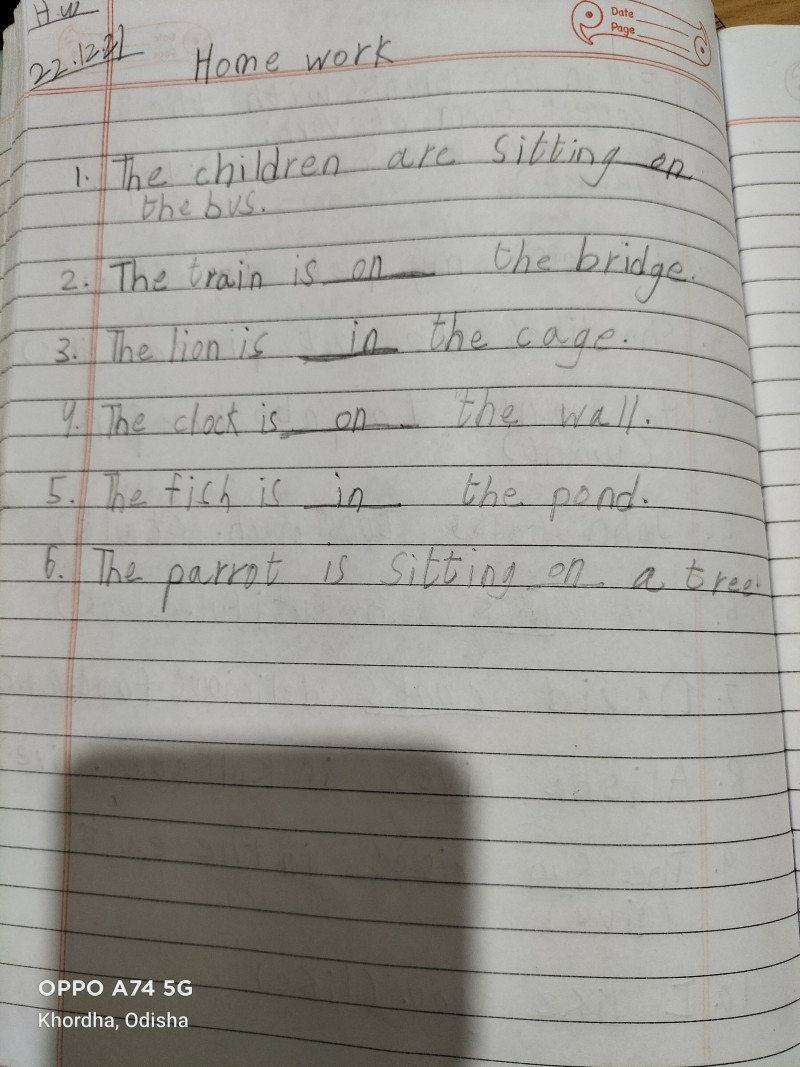 H.W
Date
Page
22.12.21
Home work
1. The children are sitting on
the bus.
2. The train is on the bridge.
3. The lion is in the cage.
4. The clock is on the wall.
5. The fish is in the pond.
6. The parrot is sitting on a tree.
OPPO A74 5G
Khordha, Odisha